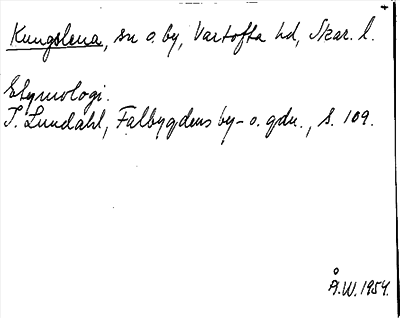 Kungslena, sn o. by, Vartofta hd, Skar. l.
Etymologi.
I. Lundahl, Falbygdens by- o. gdn., s. 109.
Å.W. 1954.